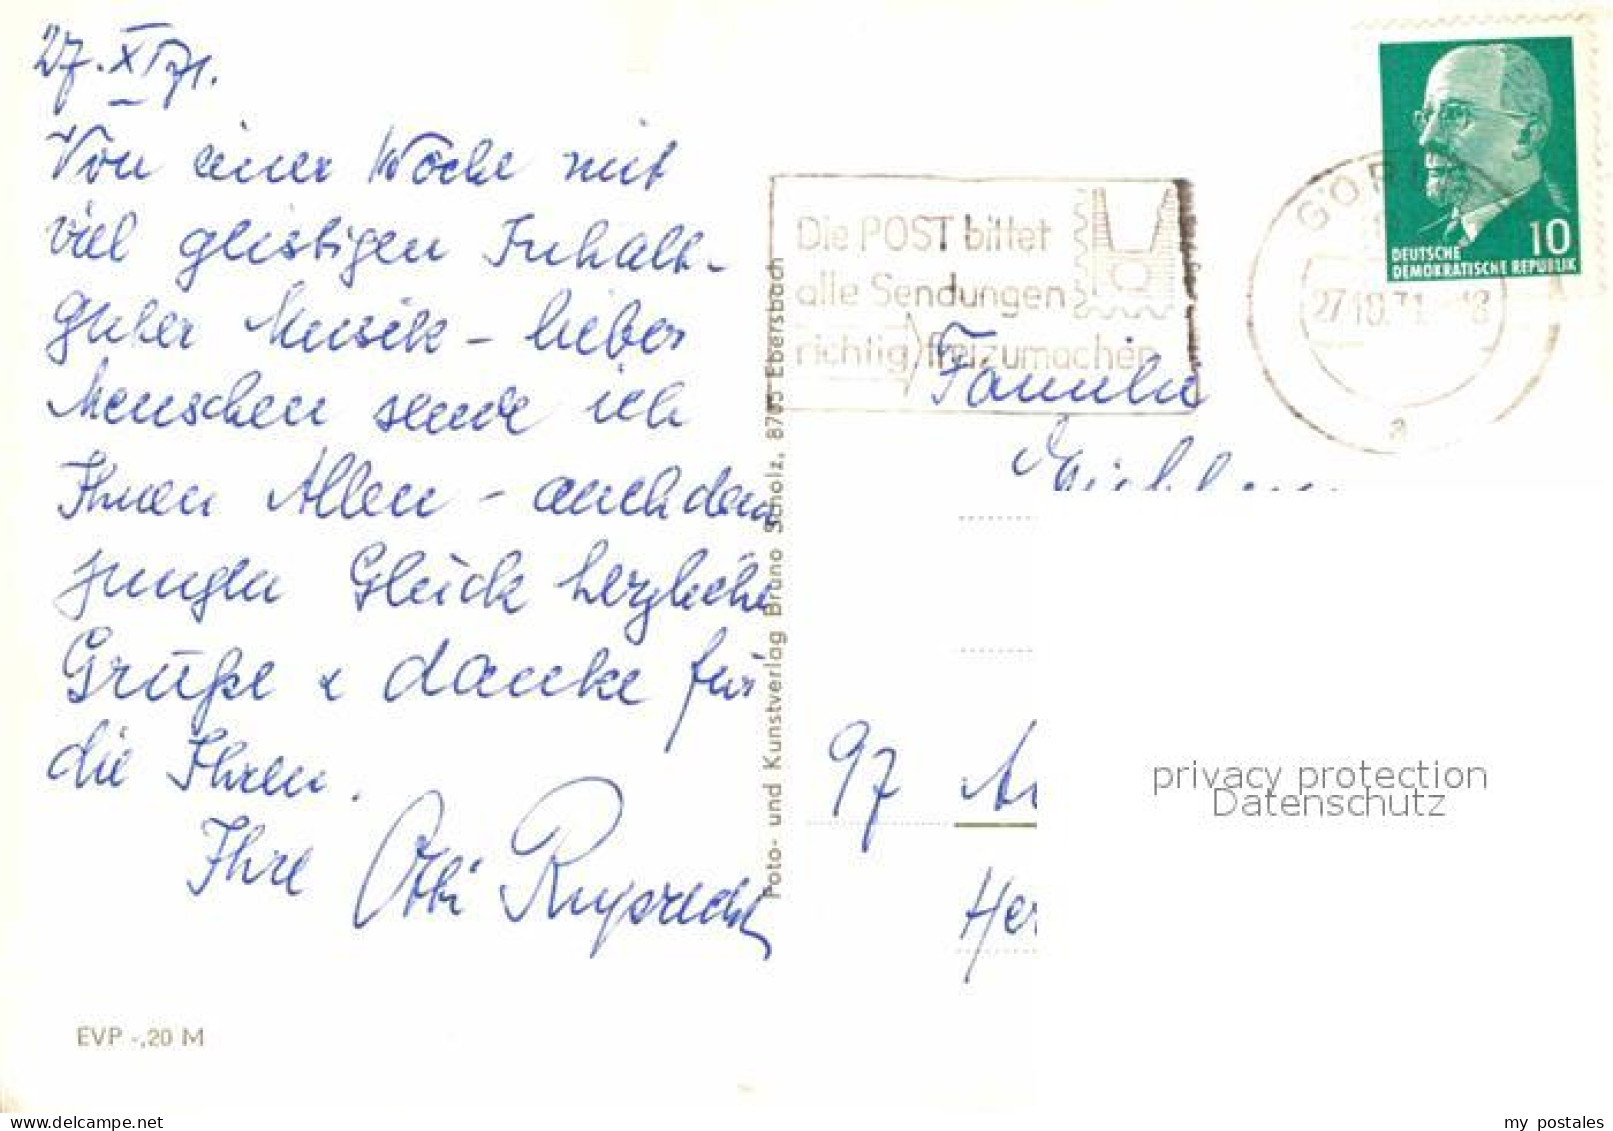 27.XI 71.
Von einer Woche mit
viel geistigen Inhalt-
guter Musik - lieber
Menschen sende ich
Ihnen Allen - auch dem
jungen Glück herzliche
Grüße & danke für
die Ihren.
Ihre Otti Ruprecht
EVP -,20 M
Foto- und Kunstverlag Bruno Scholz, 8705 Ebersbach
Die POST bittet
alle Sendungen
richtig freizumachen
27.10.71 -18
a
10
DEUTSCHE
DEMOKRATISCHE REPUBLIK
Familie
97
privacy protection
Datenschutz
my postales